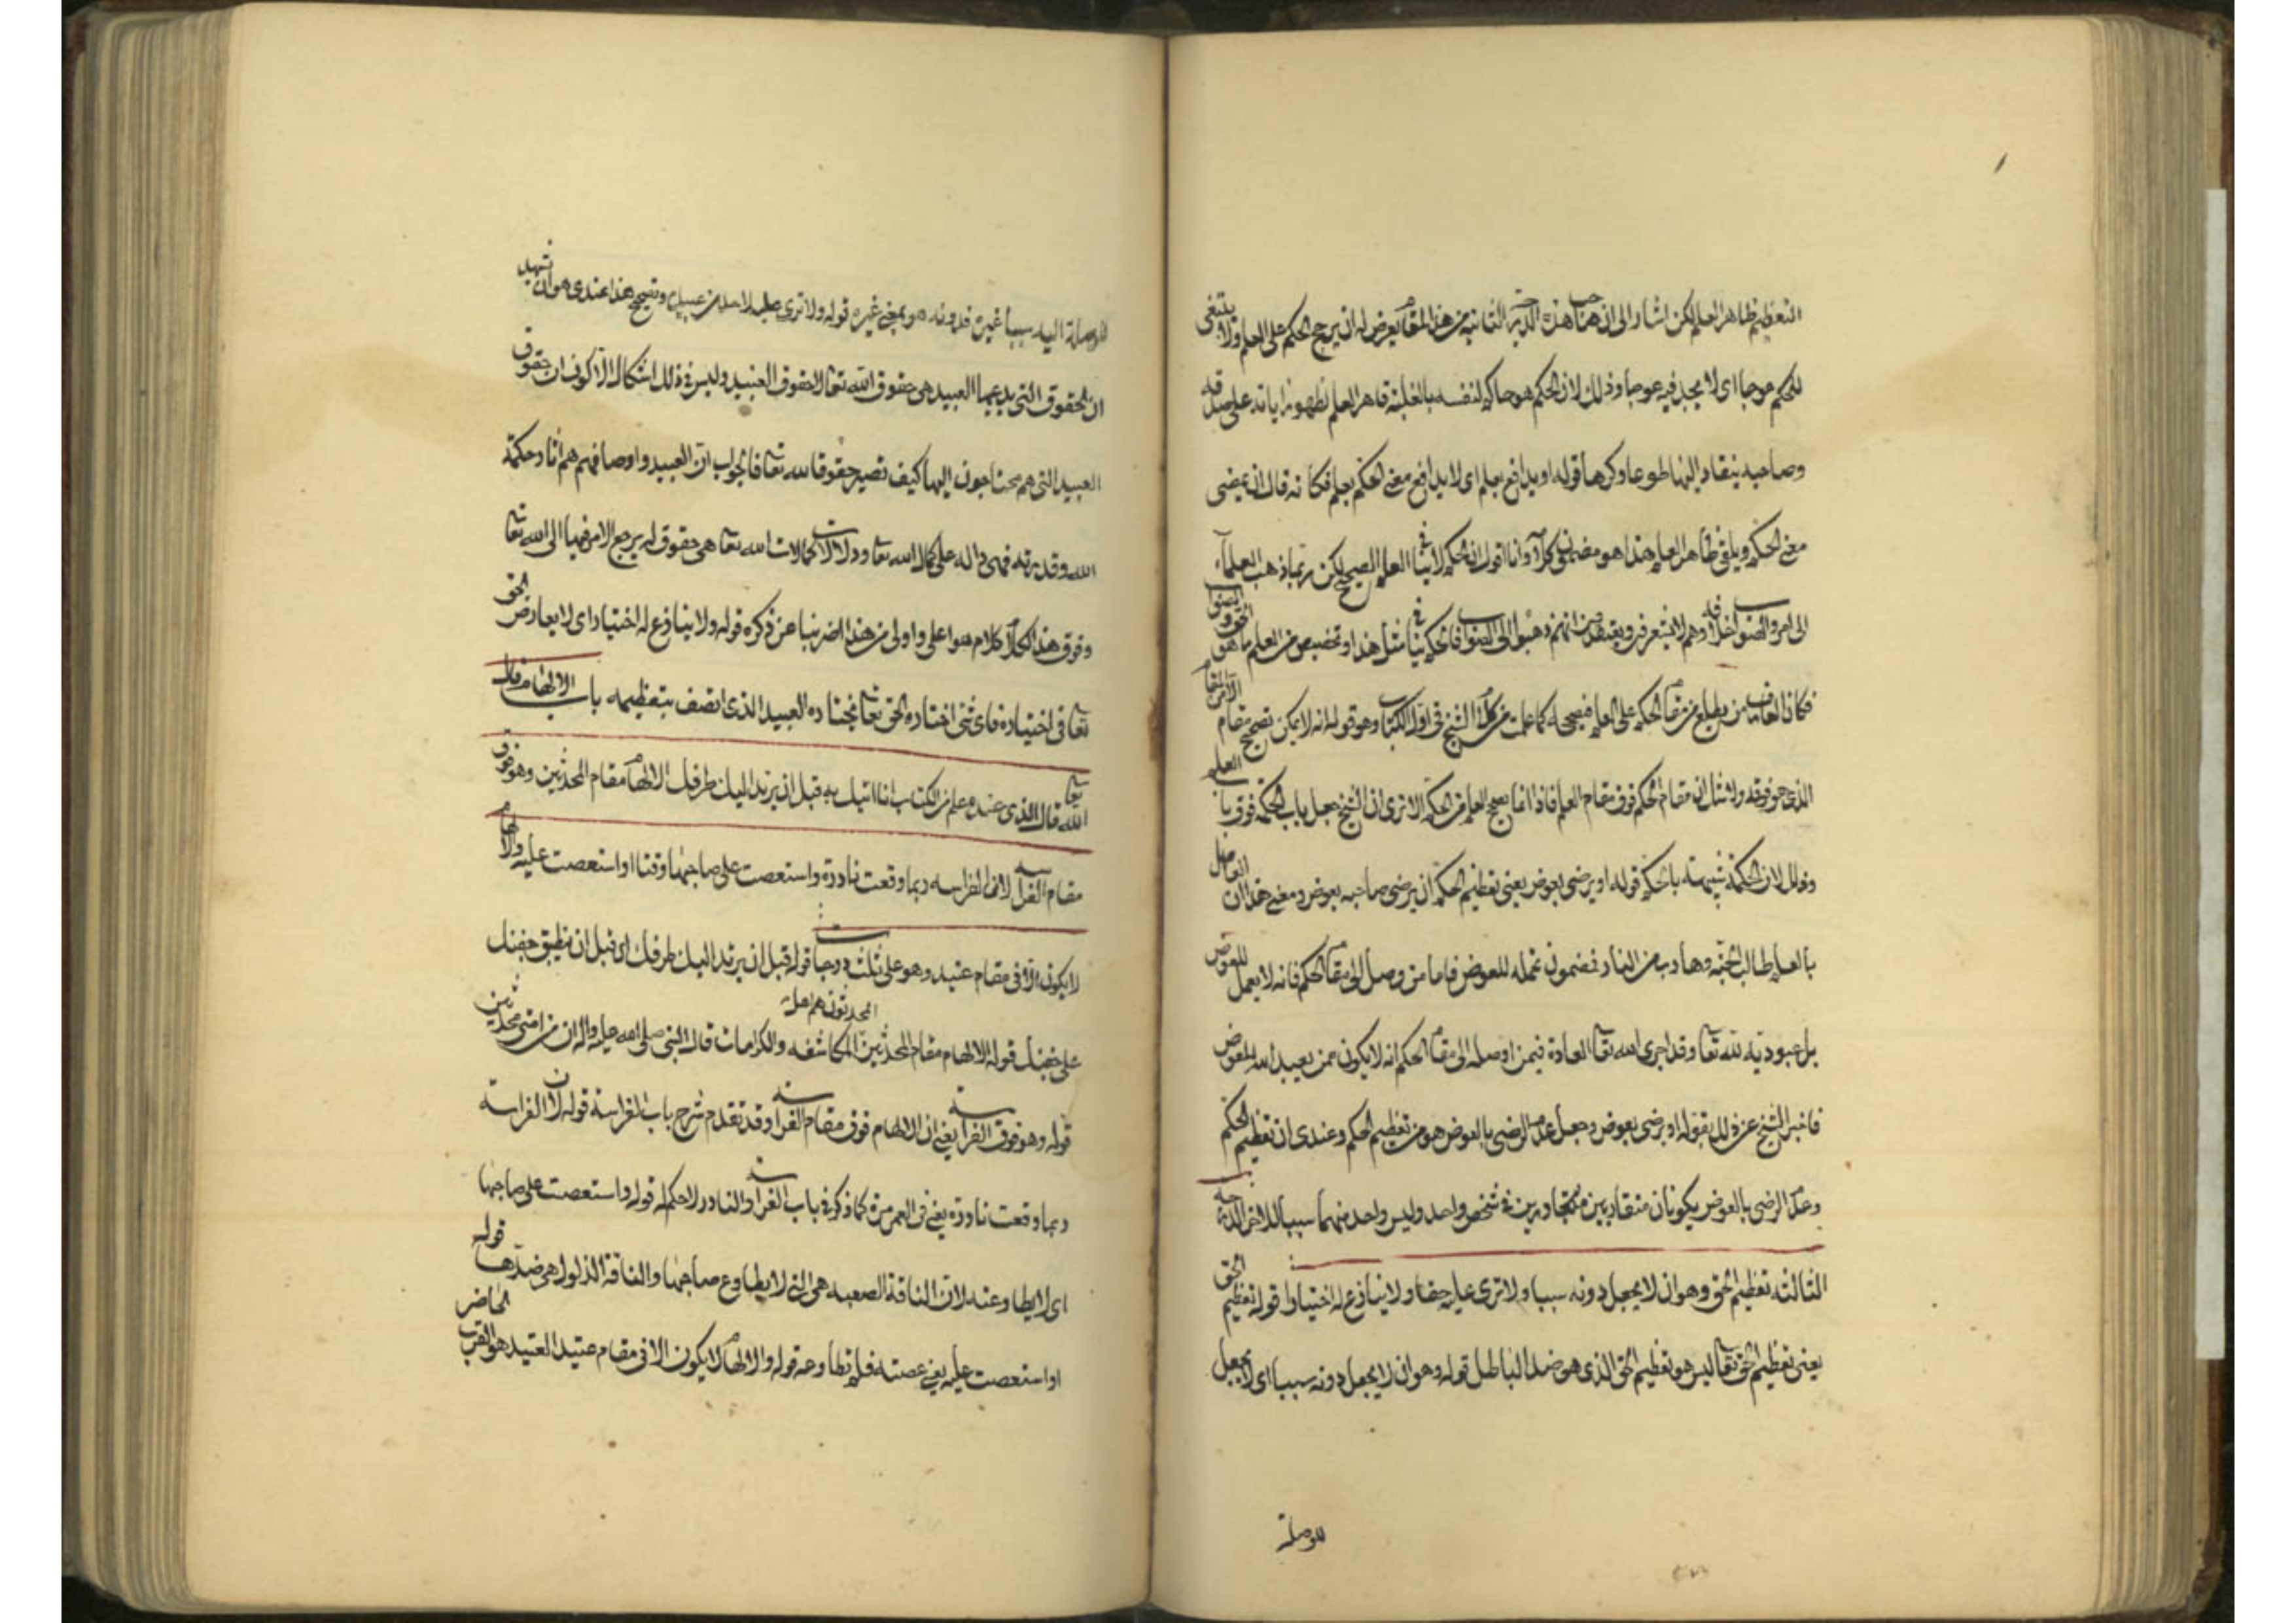 التعظيم ظاهر العلم لكن اشار الى ان صاحب هذه الدرجة الثانية من هذا المقام يعرض له ان يرجح الحكم على العلم ولا يبتغى
للحكم عوجا اى لا يجد فيه عوجا وذلك لان الحكم هو حاكم لنفسه بالغلبة قاهر العلم لظهور اياته على صدقه
وصاحبه ينقاد اليها طوعا وكرها قوله او يدافع بعلم اى لا يدافع معنى الحكم بعلم فكانه قال ان يمضى
معنى الحكم ويلقى ظاهر العلم هذا هو مضمون كلامه وانا اقول ان الحكم لا ينافى العلم الصحيح لكن ربما ذهب العلماء
الى امر والصواب خلافه وهم لا يشعرون ويعتقد انهم ذهبوا الى الصواب فالحكم ينافى مثل هذا وتخصيص من العلم ما هو الحق والصواب
فكان العارف من يطلع من مقام الحكم على العلم فيصححه كما علمت من كلام الشيخ فى اول الكتاب وهو قوله انه لا يمكن تصحيح مقام الا من المقام
الذى هو فوقه ولا شك ان مقام الحكم فوق مقام العلم فاذا انما يصح العلم من الحكم الا ترى ان الشيخ جعل باب الحكمة فوق باب العلم
وذلك لان الحكمة شبيهة بالحكم قوله او يرضى بعوض يعنى تعظيم الحكم ان يرضى صاحبه بعوض ومعنى هذا ان العامل
بالعلم طالب الجنة وهارب من النار فمضمون عمله للعوض فاما من وصل الى مقام الحكم فانه لا يعمل للعوض
بل عبودية لله تعا وقد اجرى الله تعا العادة فيمن اوصله الى مقام الحكم انه لا يكون ممن يعبد الله للعوض
فاخبر الشيخ عن ذلك بقوله او يرضى بعوض وجعل عدم الرضى بالعوض هو من تعظيم الحكم وعندى ان تعظيم الحكم
وعدم الرضى بالعوض يكونان متقاربين متجاورين فى شخص واحد وليس واحد منهما سببا للاخر الدرجة
الثالثة تعظيم الحق وهو ان لا يجعل دونه سببا ولا ترى عليه حقا ولا ينازع له اختيارا قوله تعظيم الحق
يعنى تعظيم الحق تعا ليس هو تعظيم الحق الذى هو ضد الباطل قوله وهو ان لا يجعل دونه سببا اى لا يجعل
للوصلة
للوصلة اليه سببا غيره فدونه هو بمعنى غيره قوله ولا ترى عليه لاحد من عبيده وتصحيح هذا عندى هو ان تشهد
ان الحقوق التى يدعيها العبيد هى حقوق الله تعا لا حقوق العبيد وليس فى ذلك اشكال الا كون ان حقوق
العبيد التى هم محتاجون اليها كيف تصير حقوقا لله تعا فالجواب ان العبيد واوصافهم هم اثار حكمة
الله وقدرته فهى دالة على كمال الله تعا ودلالات كمالات الله تعا هى حقوق له يرجع الامر فيها الى الله تعا
وفوق هذا الكلام كلام هو اعلى واولى من هذا اضربنا عن ذكره قوله ولا ينازع له اختيارا اى لا يعارض الحق
تعا فى اختياره فاى شئ اختاره الحق تعا يختاره العبيد الذى اتصف بتعظيمه باب الالهام قال
الله تعا قال الذى عنده علم من الكتاب انا اتيك به قبل ان يرتد اليك طرفك الالهام مقام المحدثين وهو فوق
مقام الفراسة لان الفراسه ربما وقعت نادرة واستعصت على صاحبها وقتا او استعصت عليه والالهام
لا يكون الا فى مقام عتيد وهو على ثلث درجات قوله قبل ان يرتد اليك طرفك اى قبل ان يطبق جفنك
المحدثون هم اهل
على جفنك قوله الالهام مقام المحدثين المكاشفه والكرامات قال النبى صلى الله عليه واله ان من امتى محدثين
قوله وهو فوق الفراسة يعنى ان الالهام فوق مقام الفراسة وقد تقدم شرح باب الفراسة قوله لان الفراسة
ربما وقعت نادرة يعنى فى العمر مرة كما ذكر فى باب الفراسة والنادر لا حكم له قوله واستعصت على صاحبها
اى لا يطاوعنه لان الناقة الصعبه هى التى لا يطاوع صاحبها والناقة الذلول هى ضدها قوله
او استعصت عليه يعنى عصته فلم تطاوعه قوله والالهام لا يكون الا فى مقام عتيد العتيد هو القريب الحاضر